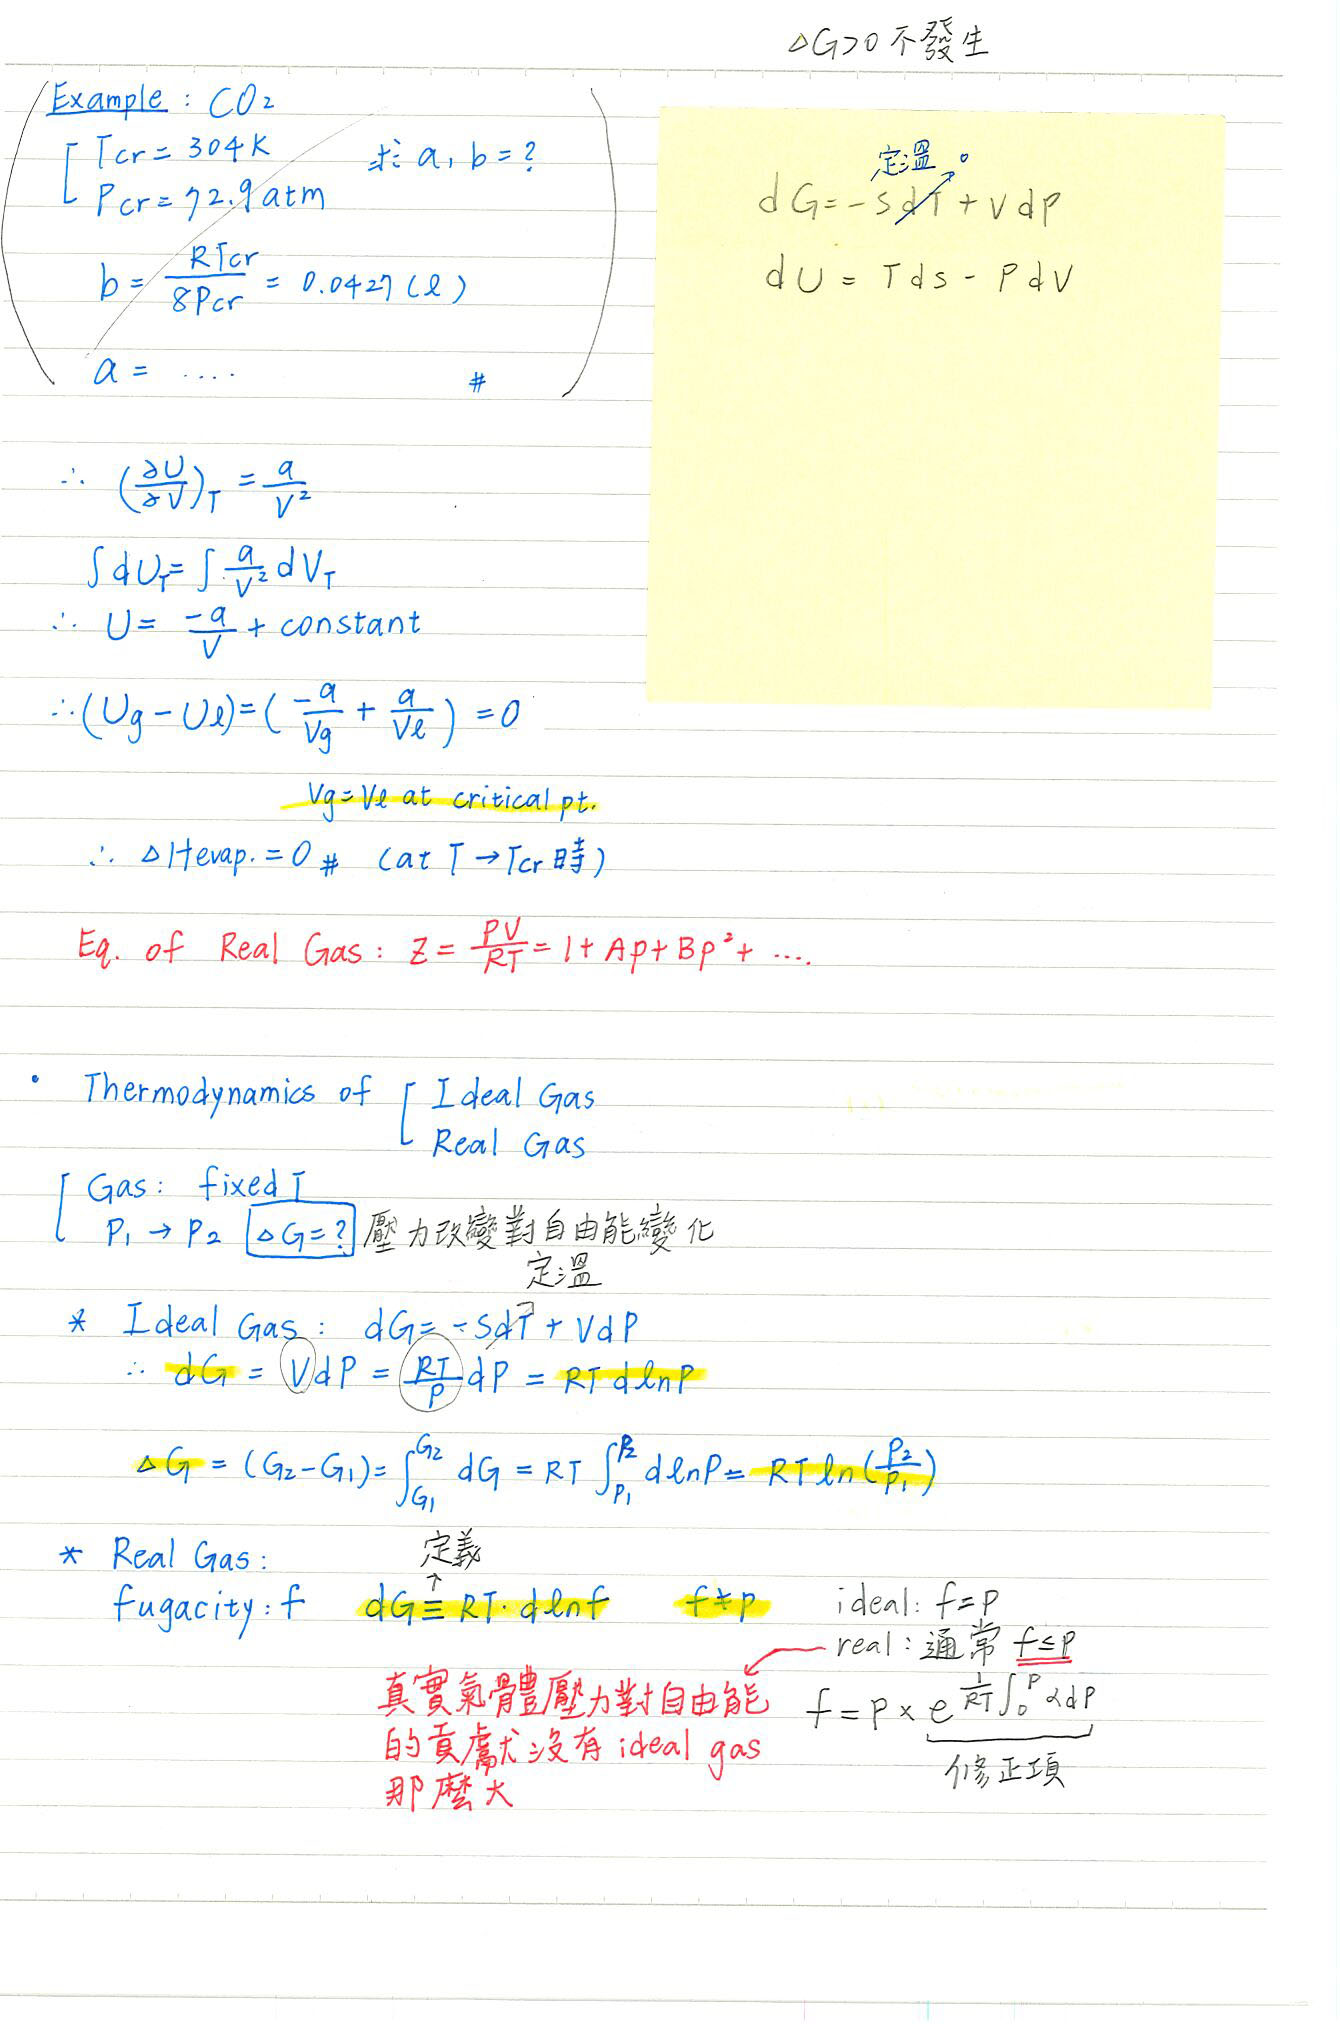 △G>0 不發生
Example : CO₂
Tcr = 304K 求 a, b = ?
Pcr = 72.9 atm
b = RTcr/8Pcr = 0.0427 (ℓ)
a = .... #
定溫 0
dG = -SdT + VdP
dU = Tds - PdV
∴ (∂U/∂V)_T = a/V²
∫dU_T = ∫ a/V² dV_T
∴ U = -a/V + constant
∴ (Ug - Uℓ) = (-a/Vg + a/Vℓ) = 0
Vg = Vℓ at critical pt.
∴ △Hevap. = 0 # (at T → Tcr 時)
Eq. of Real Gas : Z = PV/RT = 1 + Ap + Bp² + ....
• Thermodynamics of [ Ideal Gas
Real Gas
Gas: fixed T
P₁ → P₂ △G = ? 壓力改變對自由能變化
定溫
* Ideal Gas : dG = -SdT + VdP
∴ dG = VdP = RT/P dP = RT dlnP
△G = (G₂ - G₁) = ∫_G₁^G₂ dG = RT ∫_P₁^P₂ dlnP = RT ln(P₂/P₁)
* Real Gas :
定義
↑
fugacity : f dG ≡ RT · dlnf f ≠ p
ideal : f = p
real : 通常 f ≤ p
真實氣體壓力對自由能
的貢獻沒有 ideal gas
那麼大
f = p × e^(1/RT ∫₀^P αdP)
修正項